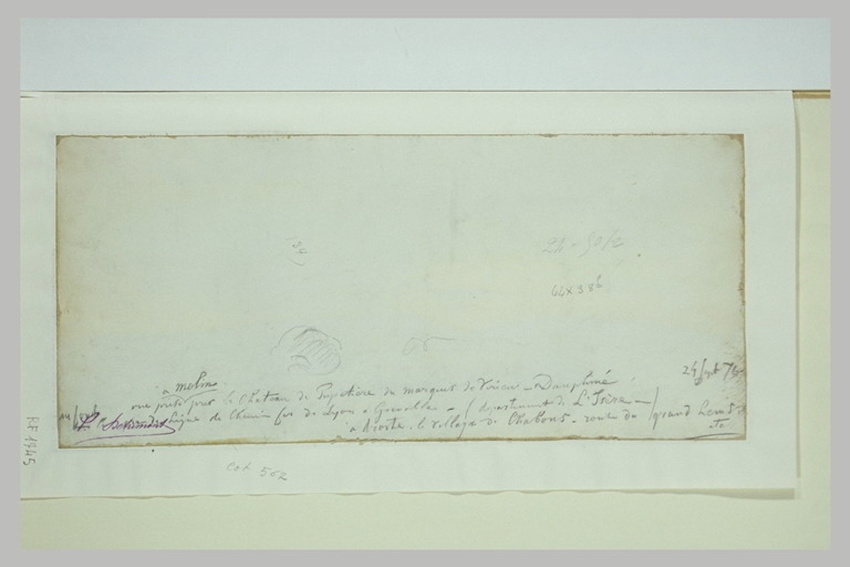 22 - 50/2
44 x 38
24 Sept 76
a molin
vue prise près le Chateau de Pupetière du marquis de Virieu - Dauphiné
ligne de Chemin fer de Lyon a Grenoble - (département de L'Isère -
a droite, le village de Chabons - route du grand Lemps
RF 1945
cat 502